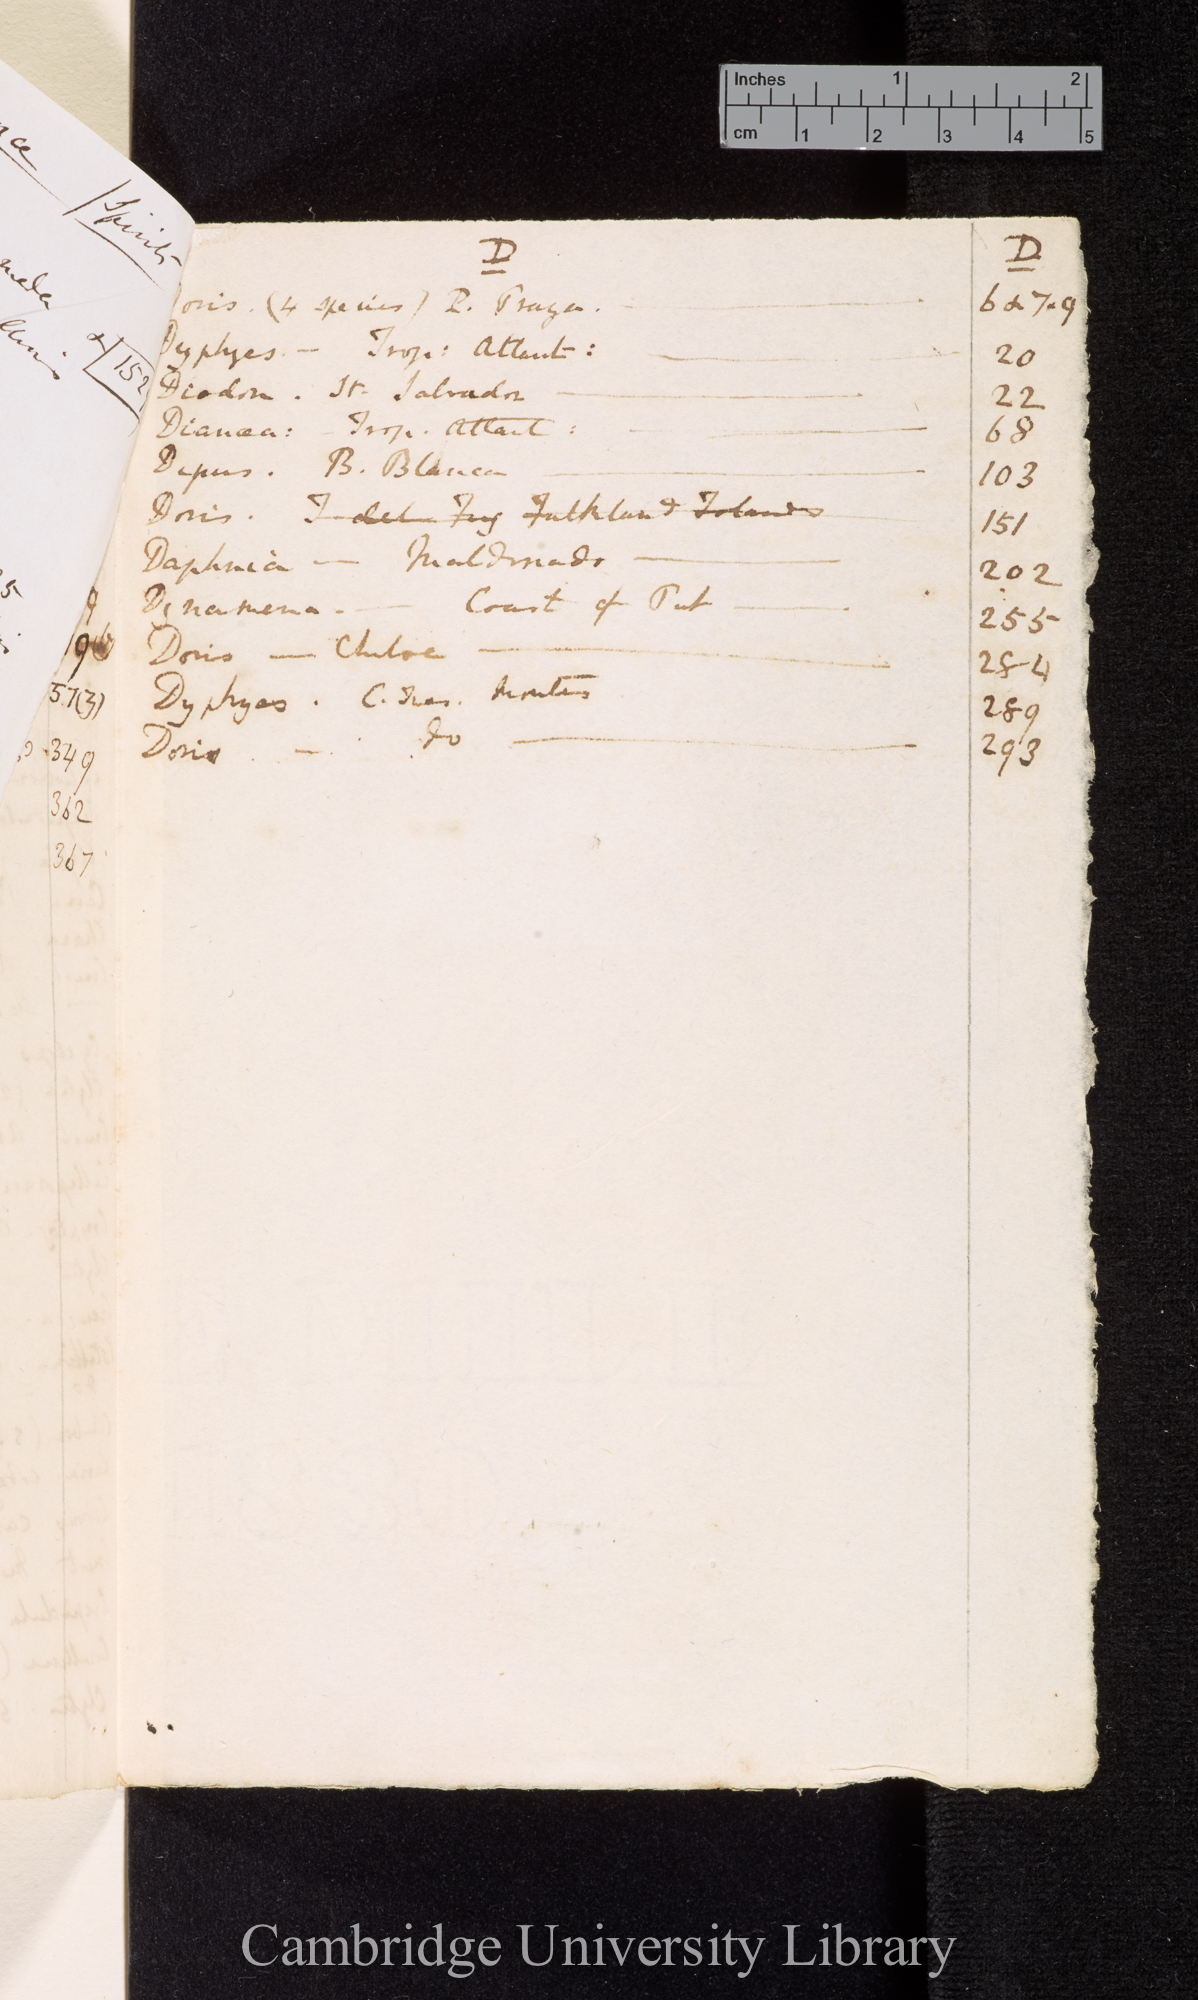 Inches 1 2
cm 1 2 3 4 5
Spirits
152
D D
Doris. (4 species) P. Praya. 6 & 7. 9
Dyphyes. — Trop: Atlant: 20
Diodon. St. Salvador 22
Dianaea: Trop. Atlant: 68
Dipus. B. Blanca 103
Doris. T del Fueg Falkland Islands 151
Daphnia — Maldonado 202
Dynamena. — Coast of Pat 255
Doris — Chiloe 284
Dyphyes. C. Tres. Montes 289
Doris — Do 293
9
57(3)
349
362
367
Cambridge University Library